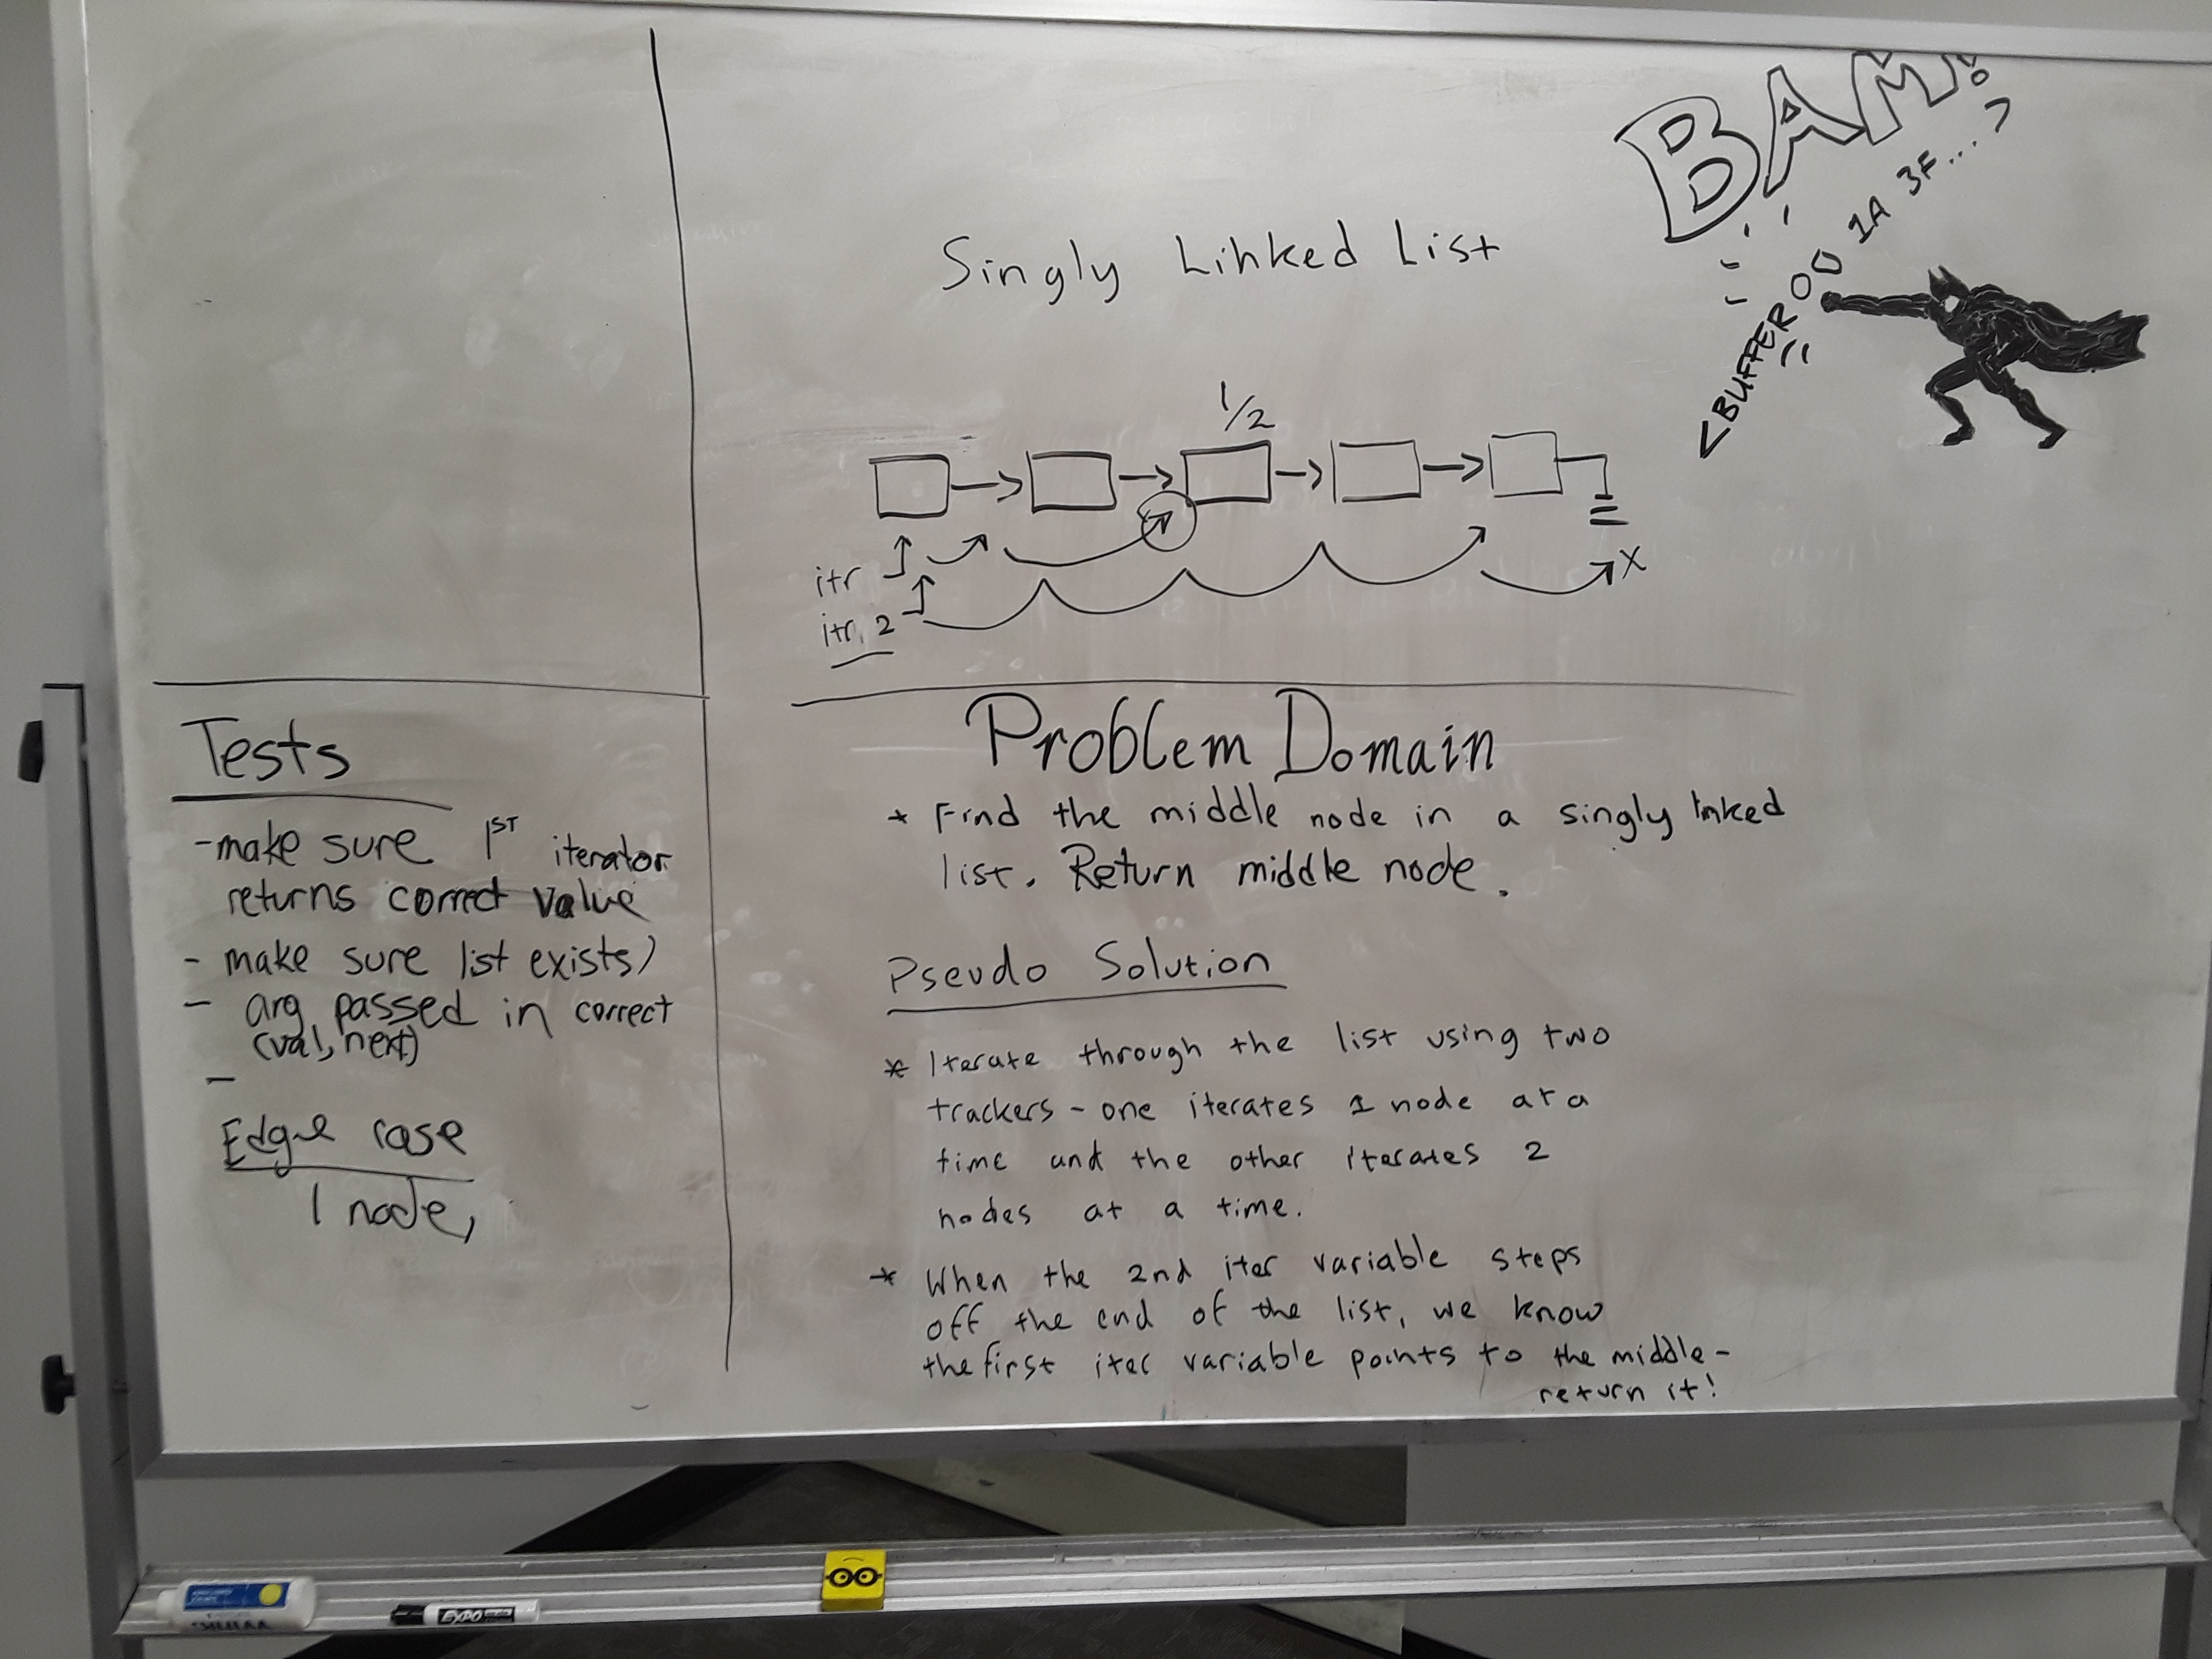 BAM!
<BUFFER 00 1A 3F...>
Singly Linked List
1/2
itr
itr 2
X
Tests
-make sure 1ST iterator
returns correct value
- make sure list exists)
- arg passed in correct
(val, next)
-
Edge case
1 node,
Problem Domain
* Find the middle node in a singly linked
list. Return middle node.
Pseudo Solution
* Iterate through the list using two
trackers - one iterates 1 node at a
time and the other iterates 2
nodes at a time.
* When the 2nd iter variable steps
off the end of the list, we know
the first iter variable points to the middle-
return it!
EXPO